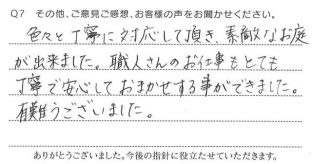 Q7 その他、ご意見ご感想、お客様の声をお聞かせください。
色々と丁寧に対応して頂き、素敵なお庭
が出来ました。職人さんのお仕事もとても
丁寧で安心しておまかせする事ができました。
有難うございました。
ありがとうございました。今後の指針に役立たせていただきます。